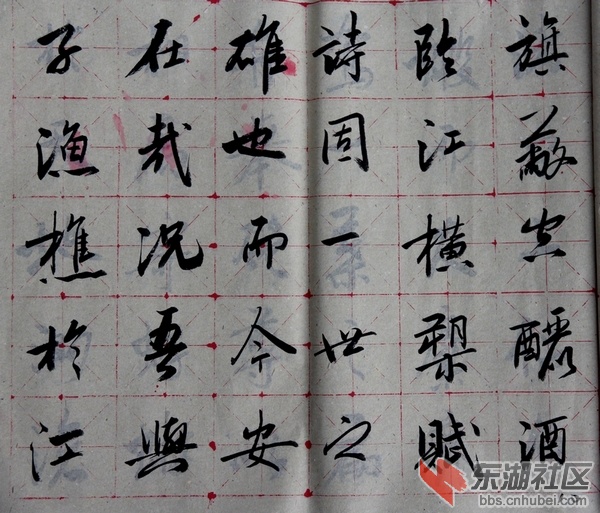 旗蔽空釃酒
臨江橫槊賦
詩固一世之
雄也而今安
在哉况吾與
子漁樵於江
东湖社区
bbs.cnhubei.com